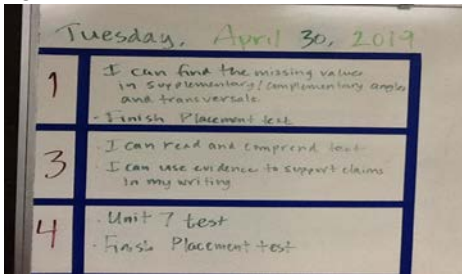 Tuesday, April 30, 2019
1
I can find the missing values
in supplementary/complementary angles
and transversals
- Finish Placement test
3
· I can read and comprend text
· I can use evidence to support claims
in my writing
4
· Unit 7 test
· Finish Placement test